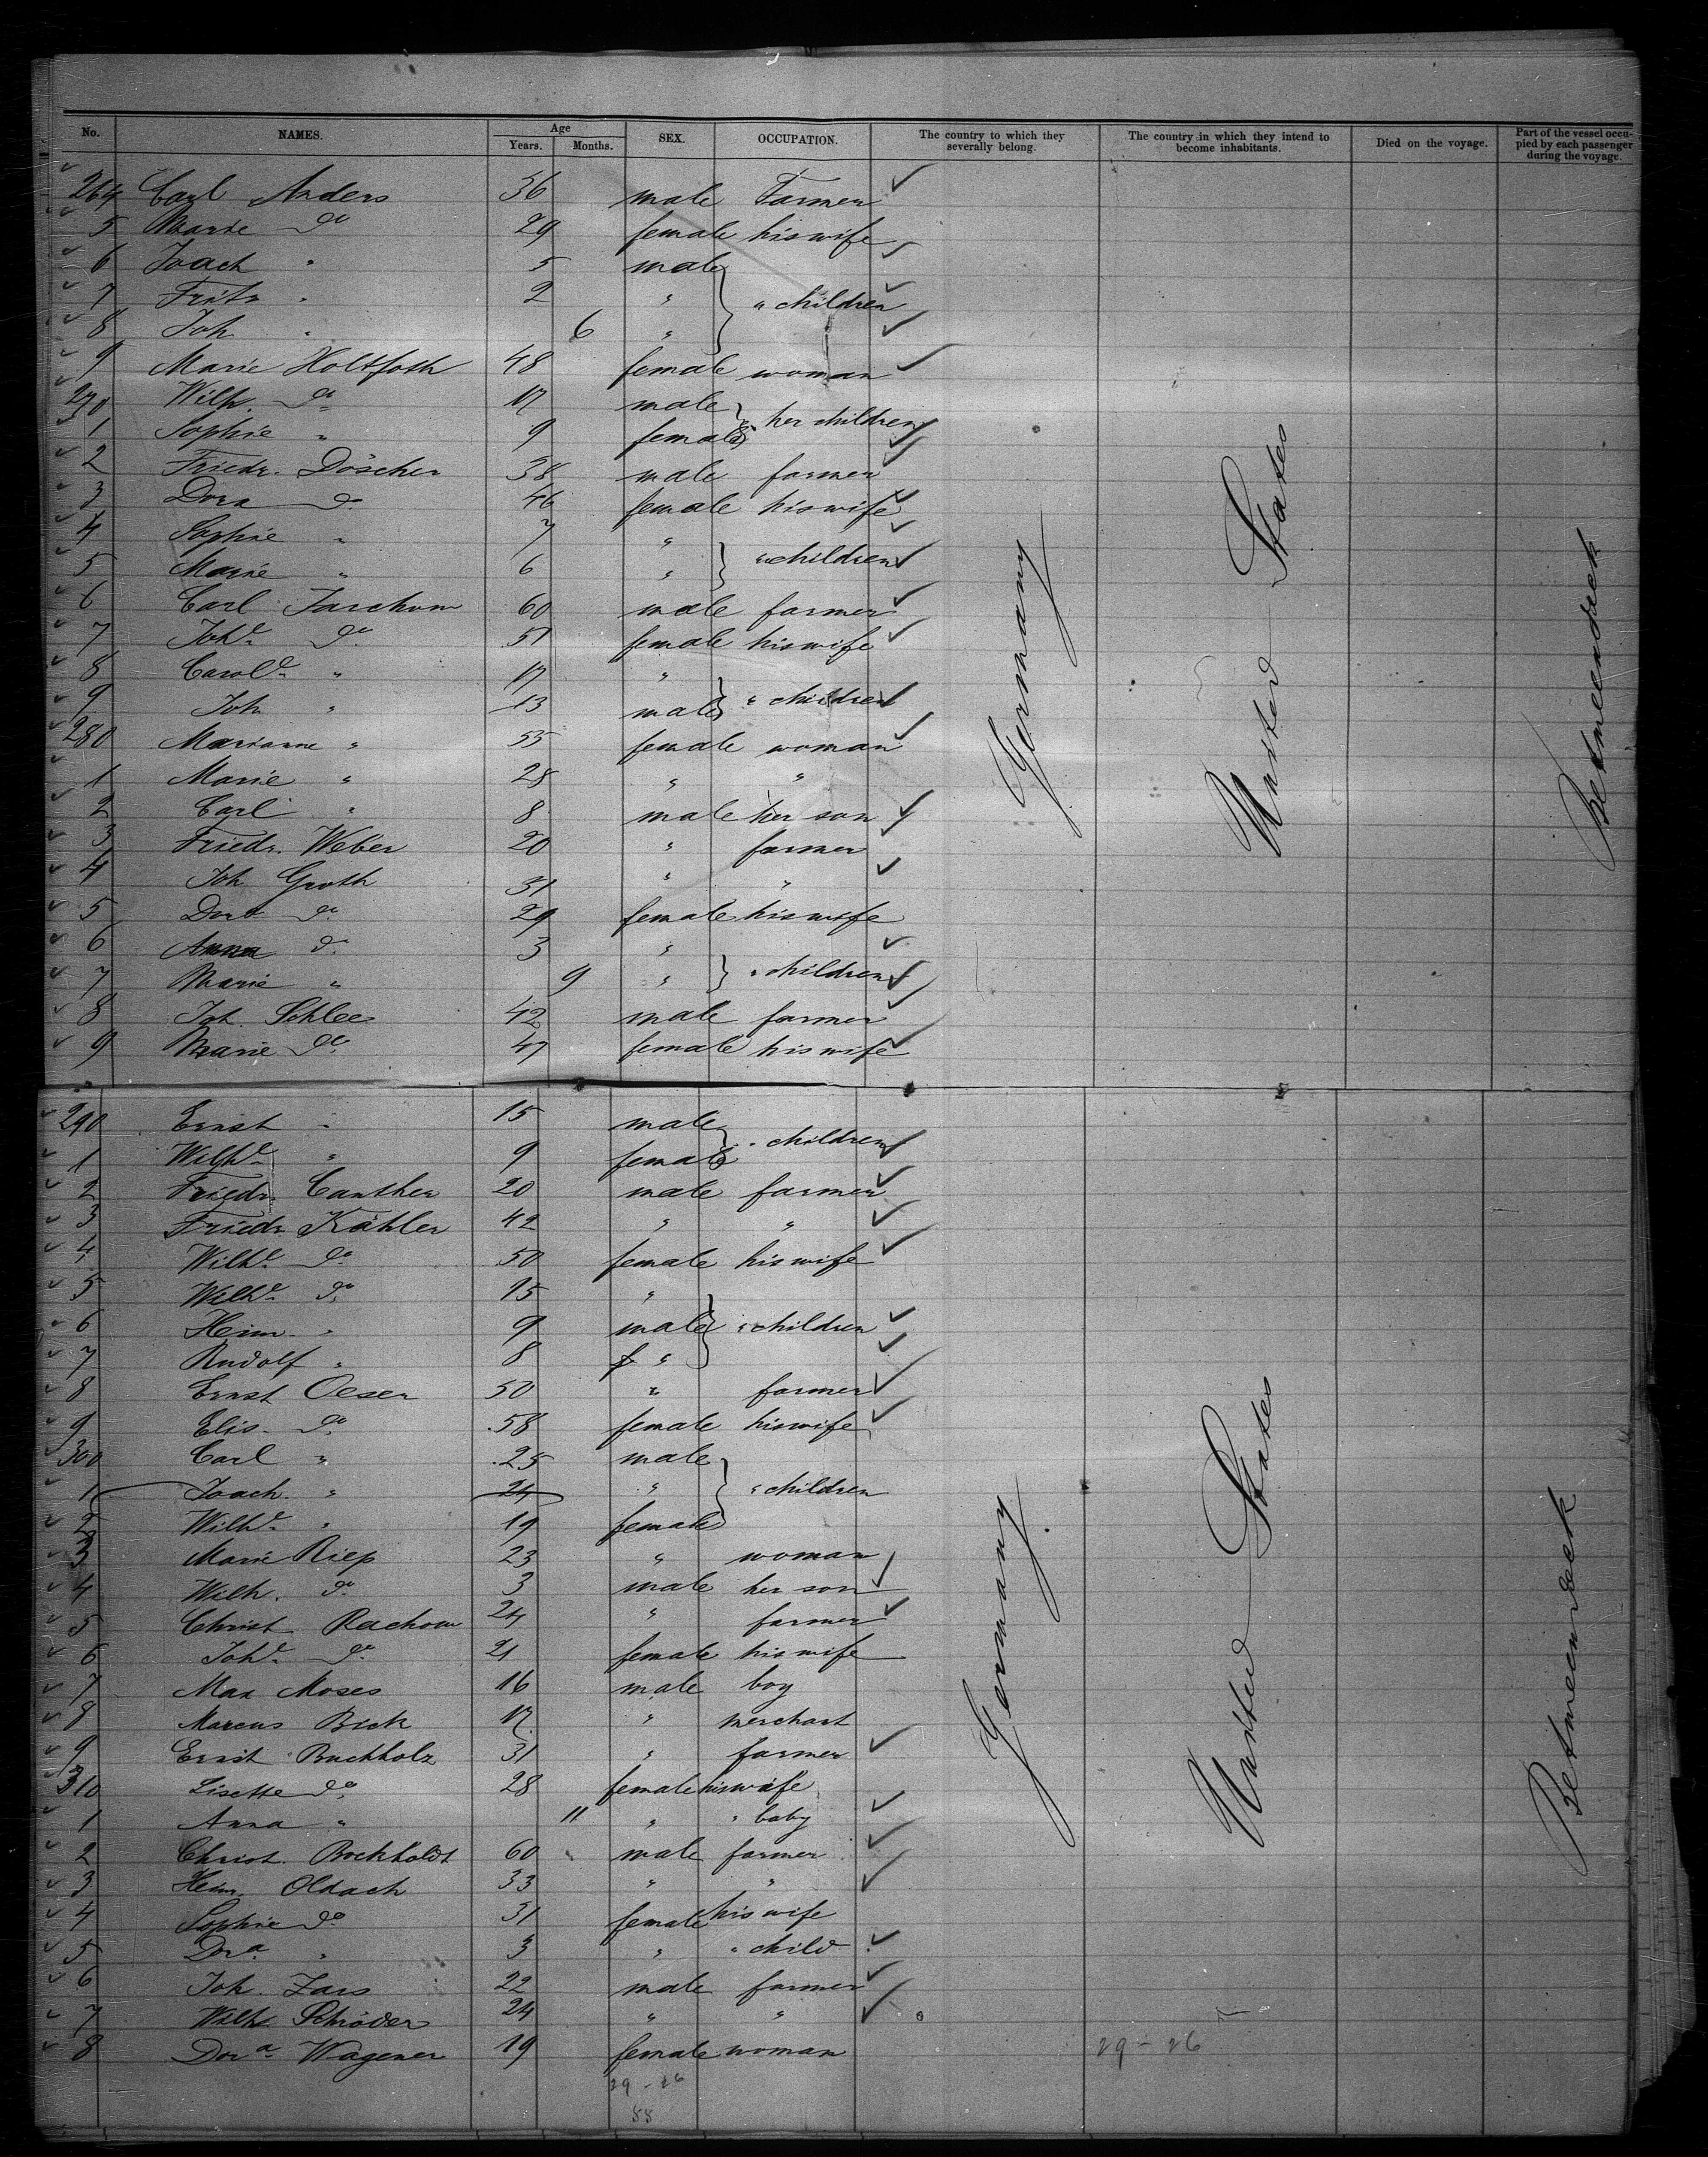 No. NAMES. Age Years. Months. SEX. OCCUPATION. The country to which they severally belong. The country in which they intend to become inhabitants. Died on the voyage. Part of the vessel occupied by each passenger during the voyage.
264 Carl Anders 36 male Farmer
5 Marie do 29 female his wife
6 Joach " 5 male
7 Fritz " 2 " " children
8 Joh " 6 "
9 Marie Holtfoth 48 female woman
270 Wilh. do 17 male her children
1 Sophie " 9 female
2 Friedr. Döscher 38 male farmer
3 Dora do 46 female his wife
4 Sophie " 7 "
5 Marie " 6 " " children
6 Carl Jarchow 60 male farmer
7 Johe do 51 female his wife
8 Carole " 17 "
9 Joh " 13 male " children
280 Marianne " 55 female woman
1 Marie " 28 " "
2 Carl " 8 male her son
3 Friedr. Weber 20 " farmer
4 Joh Groth 31 " "
5 Dora do 29 female his wife
6 Anna do 3 "
7 Marie " 9 " " children
8 Joh. Schlee 42 male farmer
9 Marie do 47 female his wife
Germany
United States
Betweendeck
290 Ernst " 15 male " children
1 Wilhe " 9 female
2 Friedr. Canther 20 male farmer
3 Friedr. Kähler 42 " "
4 Wilhe do 50 female his wife
5 Wilhe do 15 "
6 Heinr. " 9 male " children
7 Rudolf " 8 "
8 Ernst Oeser 50 " farmer
9 Elis. do 58 female his wife
300 Carl " 25 male
1 Joach. " 24 " " children
2 Wilhe " 19 female
3 Marie Riep 23 " woman
4 Wilh. do 3 male her son
5 Christ Rachow 24 " farmer
6 Johe do 21 female his wife
7 Max Moses 16 male boy
8 Marcus Bick 17 " merchant
9 Ernst Buchholz 31 " farmer
310 Lisette do 28 female his wife
1 Anna " 11 " " baby
2 Christ. Bockholdt 60 male farmer
3 Heinr. Oldach 33 " "
4 Sophie do 31 female his wife
5 Dora " 3 " " child
6 Joh. Zars 22 male farmer
7 Wilh. Schröder 24 " "
8 Dora Wagener 19 female woman
Germany.
United States
Betweendeck
29 - 26
29 - 26
55